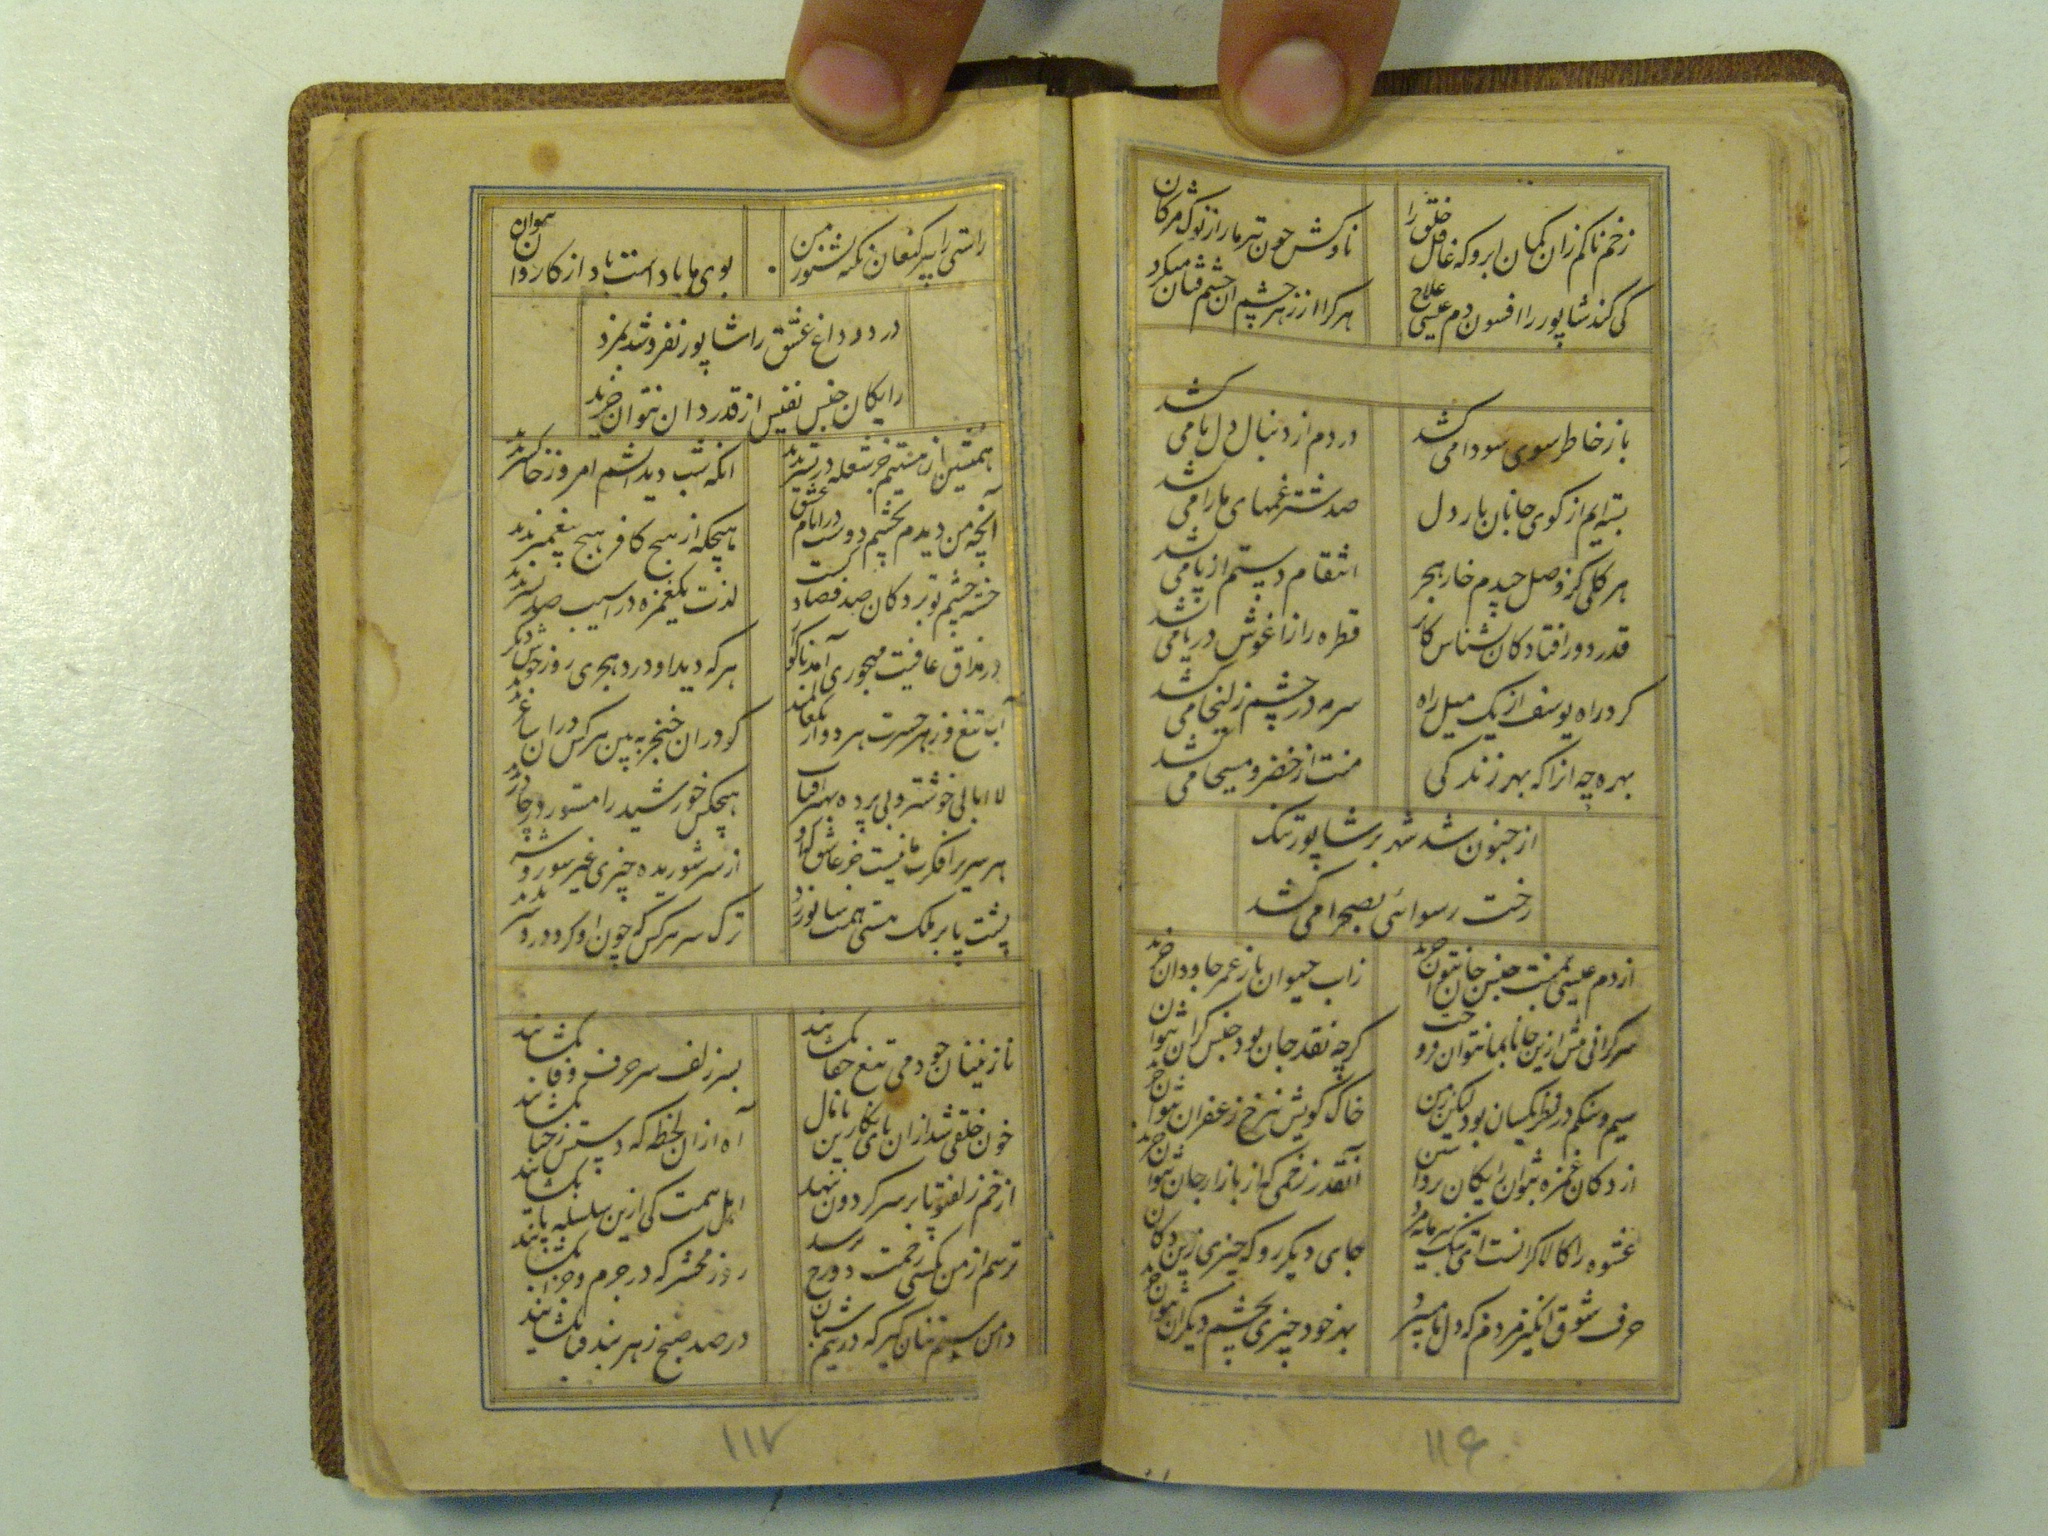 زخم ناکم زان کمان ابرو که غافل خلق را
ناوکش چون تیر مار از نوک مژگان
کی کند شاپور را افسون دم عیسی علاج
هر کرا از زهر چشم آن چشم فتان میکرد
باز خاطر سوی سودا می کشد
دردم از دنبال دل پا می کشد
بسته ایم از کوی جانان بار دل
صد شتر غمهای ما را می کشد
هر گلی کز وصل چیدم خار هجر
انتقام دستم از پا می کشد
قدر دور افتادگان بشناس کابر
قطره را ز آغوش دریا می کشد
گرد راه یوسف از یک میل راه
سرمه در چشم زلیخا می کشد
بهره چه آنرا که بهر زندگی
منت از خضر و مسیحا می کشد
از جنون شد شهر بر شاپور تنگ
رخت رسوائی بصحرا می کشد
از دم عیسی بمنت جنس جان نتوان خرید
زاب حیوان باز عمر جاودان خرید
سرگرانی مش ازین جانا بما نتوان فروخت
گرچه نقد جان بود جنس گران نتوان
سیم و سنگم در نظر یکسان بود لیکن ز من
خاک کویش نرخ زعفران نتوان خرید
از دکان غمزه نتوان رایگان برداشتن
آنقدر زخمی که از بازار جان نتوان خرید
عشوه را کالا گرانست ای تنک سرمایه رو
جای دیگر رو که چیزی زین دکان
حرف شوق انگیز مردم که دل را میبرد
بهر خود چیزی بچشم دیگران نتوان خرید
راستی را پیر کنعان نکته نشنود ز من
بوی ما با داست باد از کاروان
درد و داغ عشق را شاپور نفروشد بمزد
رایگان جنس نفیس از قدردان نتوان خرید
همنشین از هستیم جز شعله در بستر ندید
آنکه شب دید آتشم امروز خاکستر ندید
آنچه من دیدم بچشم دوست در ایام عشق
هیچکه از هیچ کافر هیچ پیغمبر ندید
خسته چشم تو بر دکان صد فصاد گشت
لذت یکغمزه در آسیب صد نشتر ندید
در مذاق عافیت مهجوری آمد ناگوار
هر که دید او درد هجری روز خوش دیگر ندید
آب تیغ و زهر حسرت هر دو از یکعالمند
گو در آن خنجر ببین هر کس در آن ساغر ندید
لا ابالی خوشتر و بی پرده بهتر آفتاب
هیچکس خورشید را مستور در چادر ندید
هر سری را فکر سامانیست جز عاشق که او
از سر شوریده چیزی غیر شور و شر ندید
پشت پا بر ملک هستی همت شاپور زد
ترک سر هر کس که چون او کرد درد سر ندید
نازنینان چو دمی تیغ جفا بگشایند
بسر زلف سر حرف وفا بگشایند
خون خلقی شد از آن پای نگارین پامال
آه از آن لحظه که دستش ز حنا بگشایند
از خم زلف تو پا بر سر گردون ننهند
اهل همت کی ازین سلسله پا بگشایند
ترسم از من بکسی زحمت دوزخ نرسد
روز محشر که در جرم و جزا بگشایند
دامن سیمتنان گیر که در نیم شبان
در صد صبح ز هر بند قبا بگشایند
۱۱۶
۱۱۷